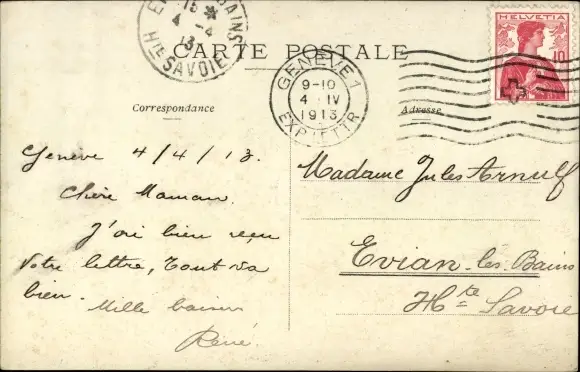 BAINS
15 *
4 -4
13
Hte SAVOIE
CARTE POSTALE
HELVETIA
10
GENÈVE 1
9-10
4 IV
1913
EXP. LETTR
Correspondance
Adresse
Genève 4/4/13.
Chère Maman.
J'ai bien reçu
votre lettre, tout va
bien. Mille baisers
René.
Madame Jules Arnulf
Evian-les-Bains
Hte Savoie